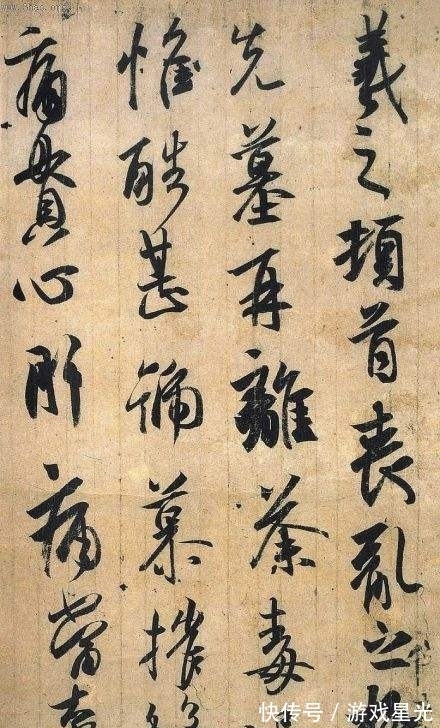 羲之頓首喪亂之
先墓再離荼毒
惟酷甚號慕摧
痛貫心肝痛當
快传号／游戏星光